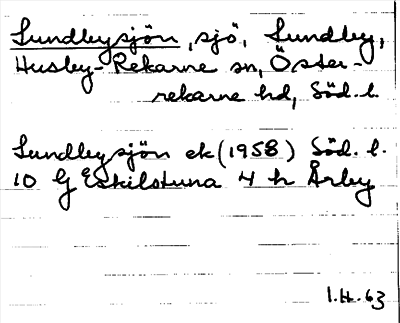 Sundbysjön, sjö, Sundby,
Husby-Rekarne sn, Öster-
rekarne hd, Söd. l.
Sundbysjön ek (1958) Söd. l.
10 G Eskilstuna 4 h Årby
1.H.63